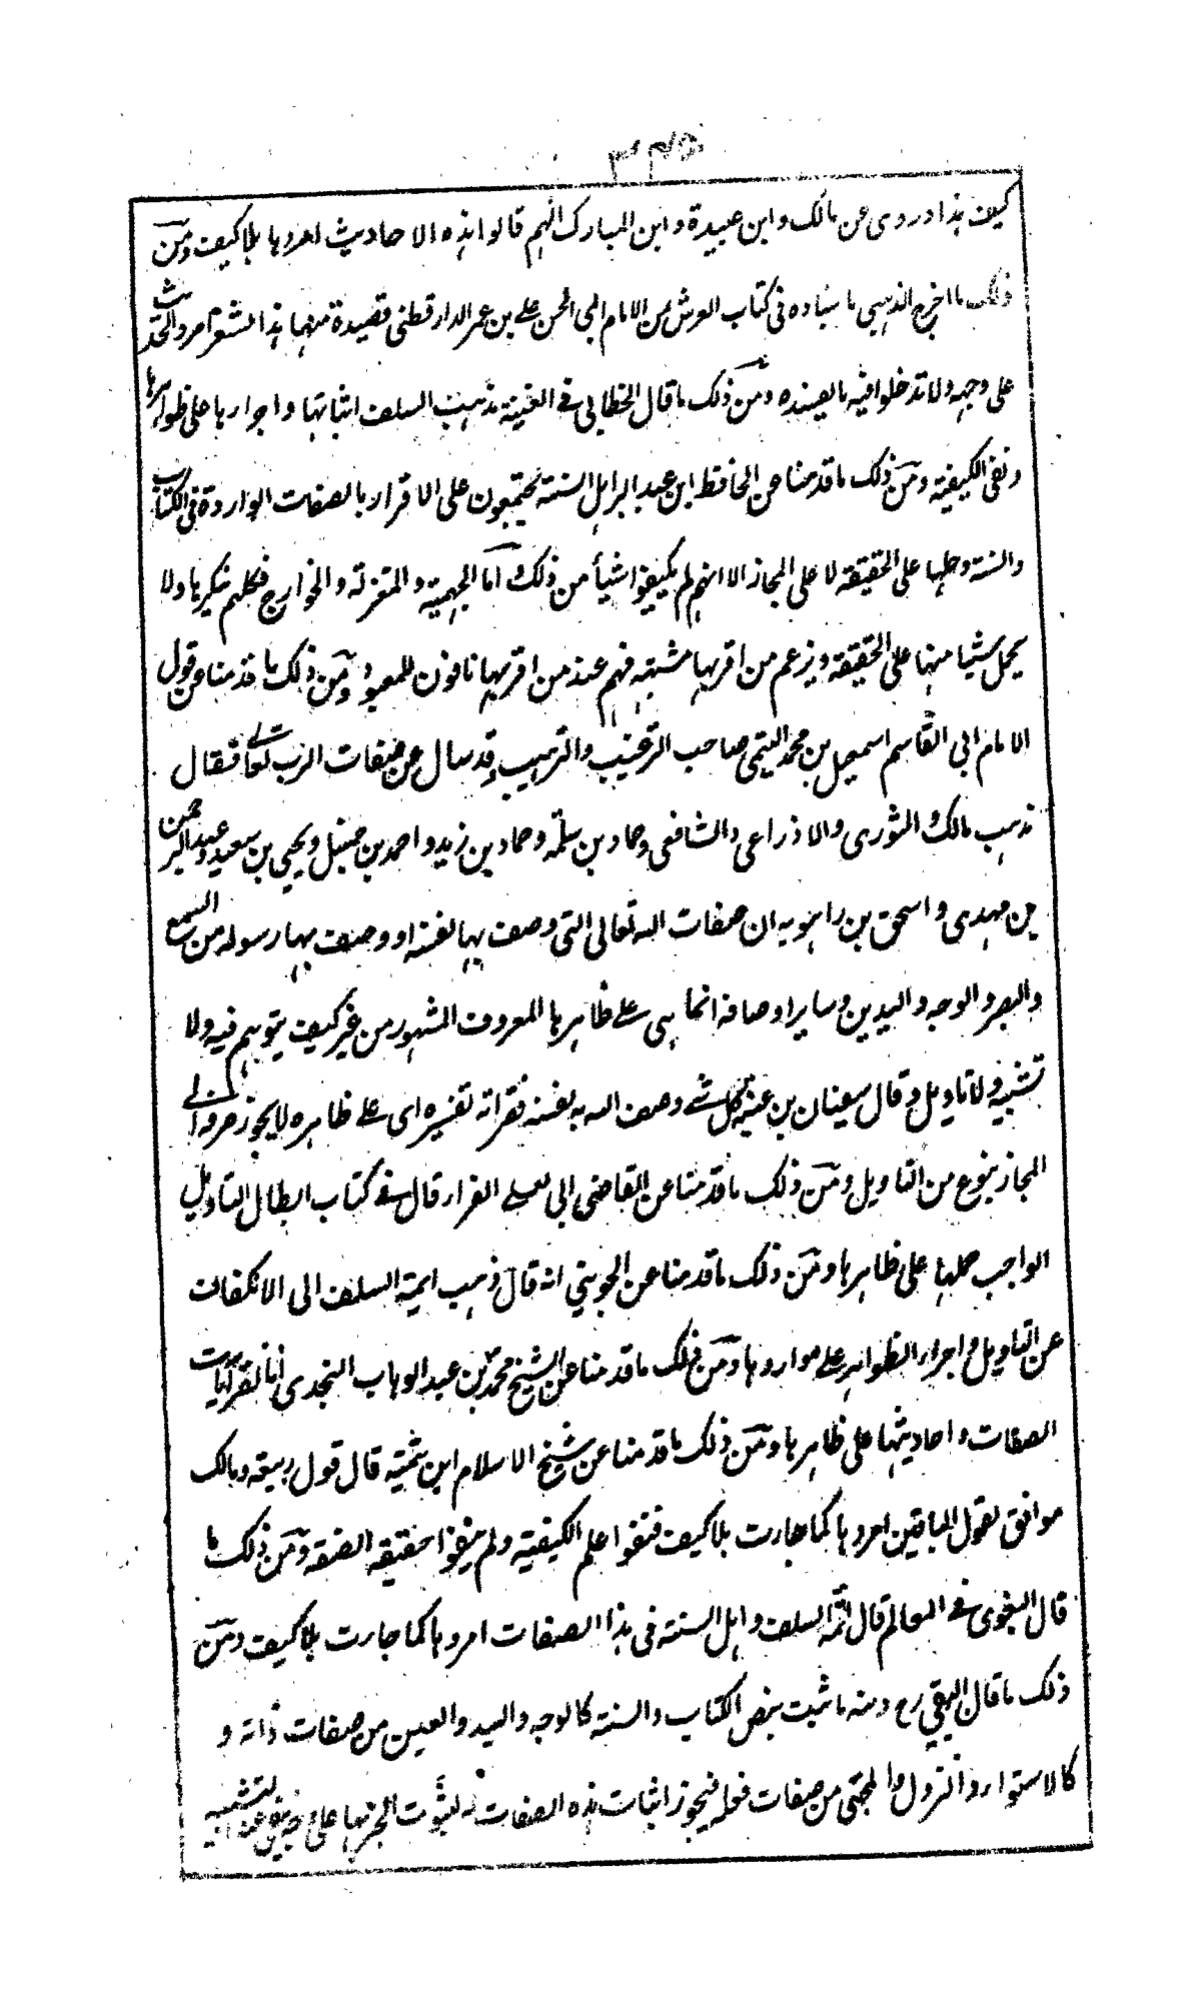 كيف هذا وروى عن مالك وابن عيينة وابن المبارك انهم قالوا هذه الاحاديث امروها بلا كيف ومن
ذلك ما اخرج الذهبي باسناده في كتاب العرش من الامام ابي الحسن علي بن عمر الدارقطني قصيدة منها هذا الشعر امروا الحديث
على وجهه ولا تدخلوا فيه ما يفسده ومن ذلك ما قال الخطابي في الغنية مذهب السلف اثباتها واجراءها على ظواهرها
ونفي الكيفية ومن ذلك ما قدمنا عن الحافظ ابن عبد البر اهل السنة مجتمعون على الاقرار بالصفات الواردة في الكتاب
والسنة وحملها على الحقيقة لا على المجاز الا انهم لم يكيفوا شيأ من ذلك اما الجهمية والمعتزلة والخوارج فكلهم ينكرها ولا
يحمل شيئا منها على الحقيقة ويزعم من اقر بها مشبه فهم عند من اقر بها نافون للمعبود ومن ذلك ما قدمنا من قول
الامام ابي القاسم اسمعيل بن محمد التيمي صاحب الترغيب والترهيب وقد سأل عن صفات الرب تعالى فقال
مذهب مالك والثوري والاوزاعي والشافعي وحماد بن سلمة وحماد بن زيد واحمد بن حنبل ويحيى بن سعيد وعبد الرحمن
بن مهدي واسحق بن راهويه ان صفات الله تعالى التي وصف بها نفسه او وصف بها رسوله من السمع
والبصر والوجه واليدين وساير اوصافه انما هي على ظاهرها المعروف المشهور من غير كيف يتوهم فيه ولا
تشبيه ولا تاويل وقال سفيان بن عيينة كل شي وصف الله به نفسه فقراته تفسيره اي على ظاهره لا يجوز صرفه الى
المجاز بنوع من التاويل ومن ذلك ما قدمنا عن القاضي ابي يعلى الفراء قال في كتاب ابطال التاويل
الواجب حملها على ظاهرها ومن ذلك ما قدمنا عن الجويني انه قال ذهب ايمة السلف الى الانكفاف
عن التاويل واجراء الظواهر على مواردها ومن ذلك ما قدمنا عن الشيخ محمد بن عبد الوهاب النجدي انا نقر آيات
الصفات واحاديثها على ظاهرها ومن ذلك ما قدمنا عن شيخ الاسلام ابن تيمية قال قول ربيعة ومالك
موافق لقول الباقين امروها كما جاءت بلا كيف فنفوا علم الكيفية ولم ينفوا حقيقة الصفة ومن ذلك ما
قال البغوي في المعالم قال ائمة السلف واهل السنة في هذا الصفات امروها كما جاءت بلا كيف ومن
ذلك ما قال البيهقي رح ومنه ما ثبت بنص الكتاب والسنة كالوجه واليد والعين من صفات ذاته و
كالاستواء والنزول والمجئ من صفات فعله فيجوز اثبات هذه الصفات له لثبوت الخبر بها على وجه ينفي عنه التشبيه